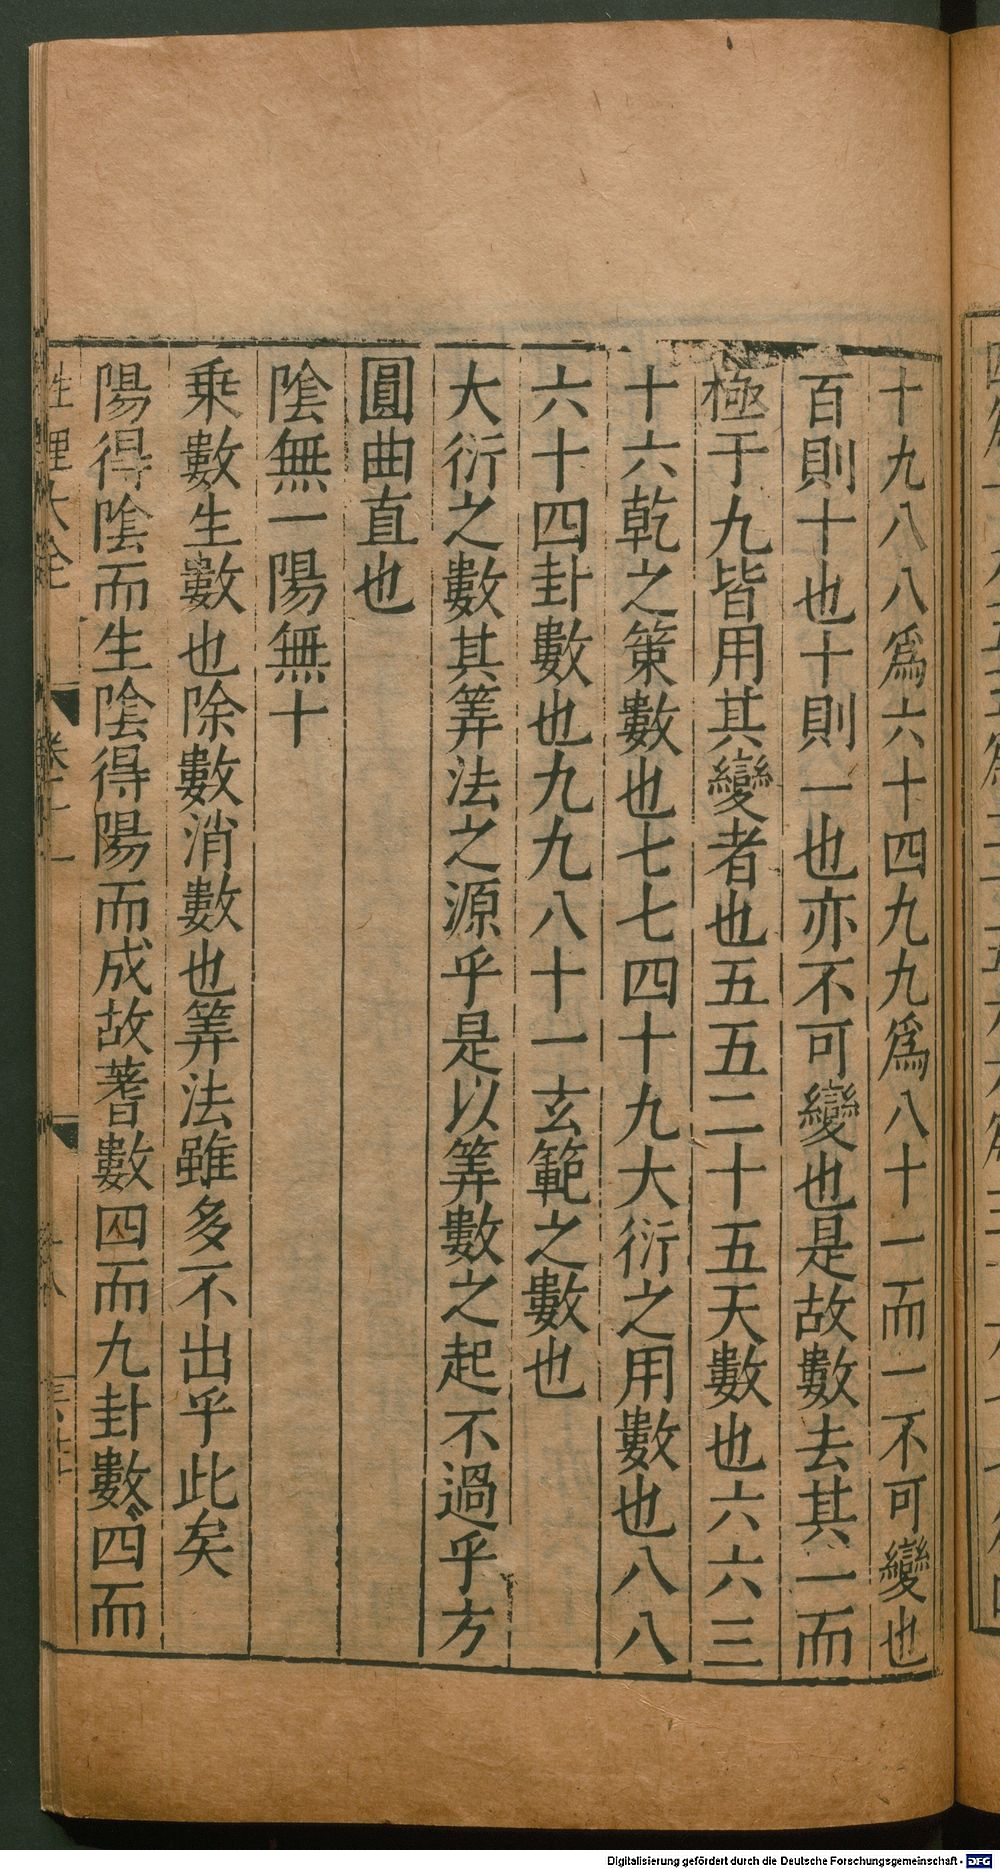 十九八八爲六十四九九爲八十一而一不可變也
百則十也十則一也亦不可變也是故數去其一而
極于九皆用其變者也五五二十五天數也六六三
十六乾之策數也七七四十九大衍之用數也八八
六十四卦數也九九八十一玄範之數也
大衍之數其筭法之源乎是以筭數之起不過乎方
圓曲直也
陰無一陽無十
乘數生數也除數消數也筭法雖多不出乎此矣
陽得陰而生陰得陽而成故蓍數四而九卦數四而
性理大全 卷十一
Digitalisierung gefördert durch die Deutsche Forschungsgemeinschaft - DFG